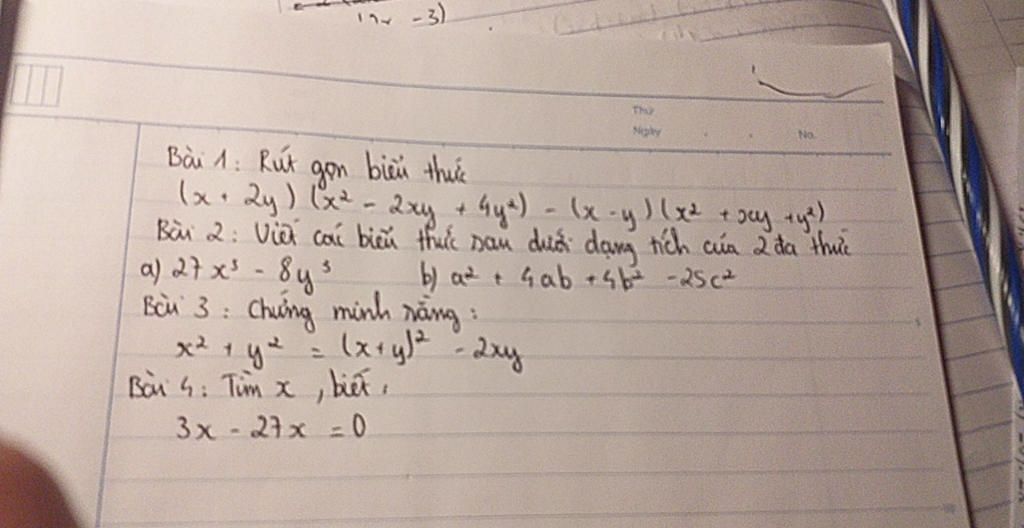 (2x - 3)
Thứ
Ngày . . No.
Bài 1: Rút gọn biểu thức
(x + 2y) (x² - 2xy + 4y²) - (x - y) (x² + xy + y²)
Bài 2: Viết các biểu thức sau dưới dạng tích của 2 đa thức
a) 27x³ - 8y³ b) a² + 4ab + 4b² - 25c²
Bài 3: Chứng minh rằng:
x² + y² = (x+y)² - 2xy
Bài 4: Tìm x, biết:
3x - 27x = 0